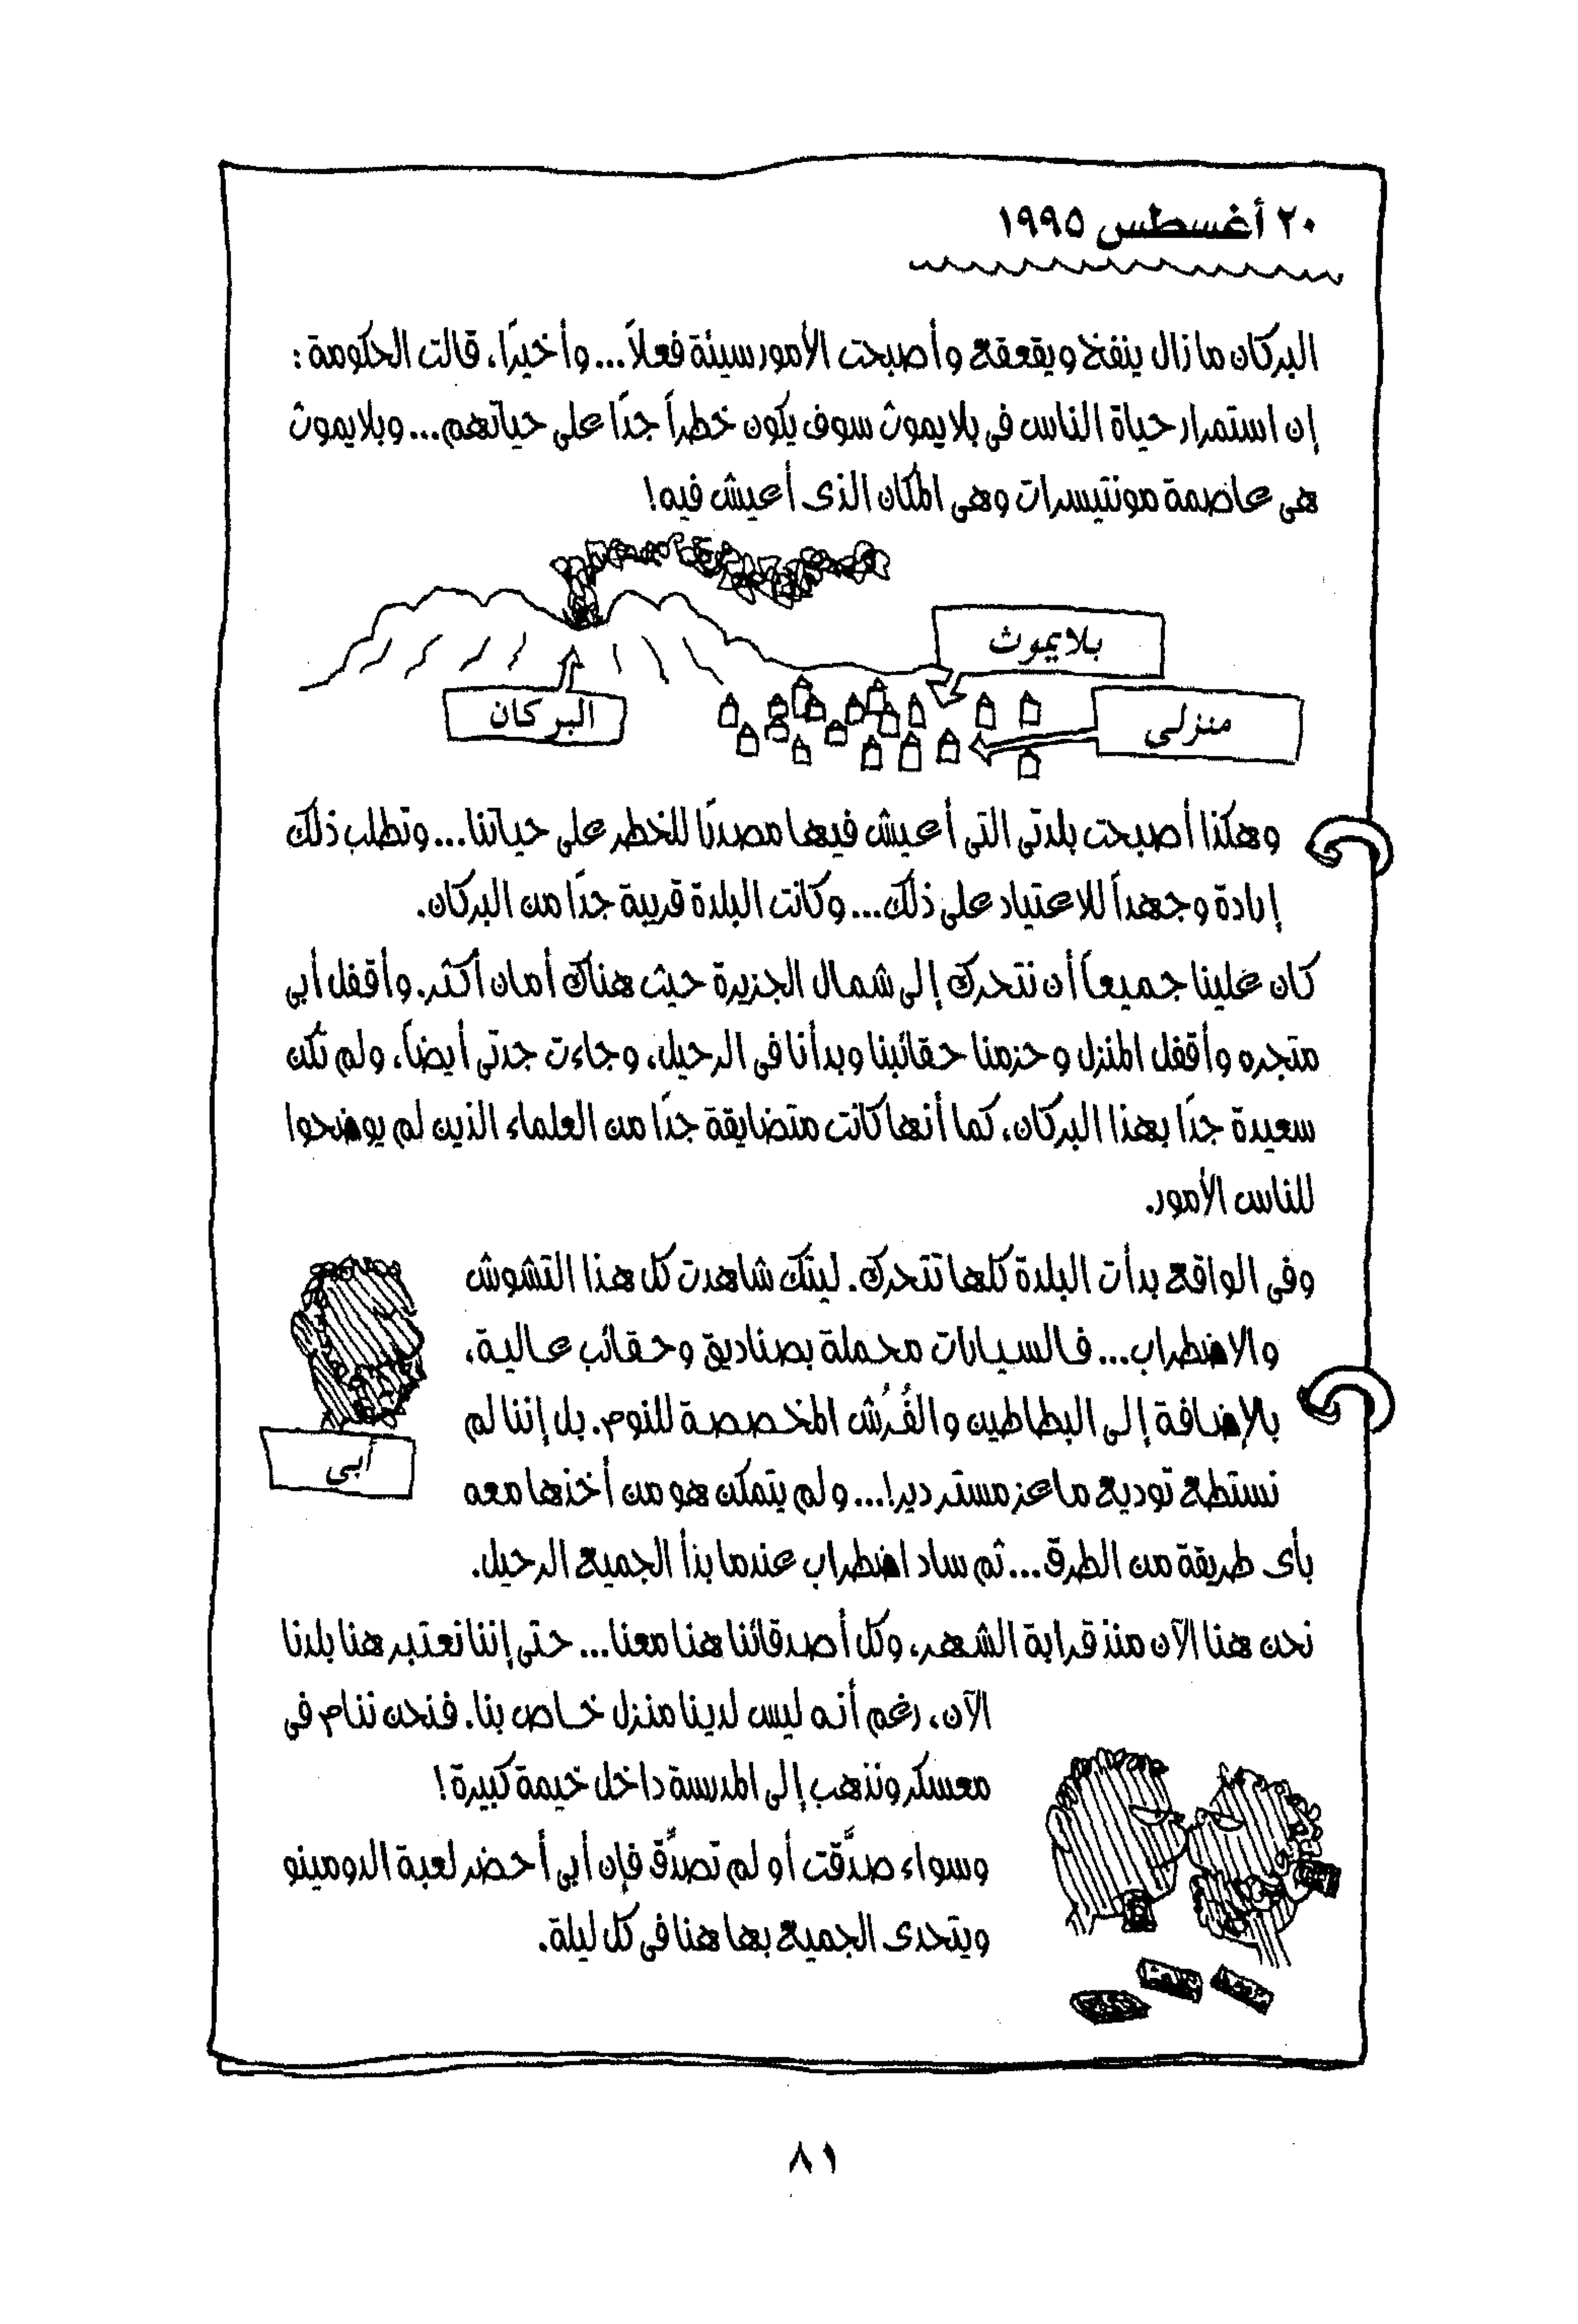 ٢٠ أغسطس ١٩٩٥
البركان ما زال ينفخ ويقعقع وأصبحت الأمور سيئة فعلاً... وأخيرًا، قالت الحكومة :
إن استمرار حياة الناس فى بلايموث سوف يكون خطراً جدًا على حياتهم... وبلايموث
هى عاصمة مونتيسرات وهى المكان الذى أعيش فيه!
بلايموث
منزلي
البركان
وهكذا أصبحت بلدتى التى أعيش فيها مصدرًا للخطر على حياتنا... وتطلب ذلك
إرادة وجهداً للاعتياد على ذلك... وكانت البلدة قريبة جدًا من البركان.
كان علينا جميعاً أن نتحرك إلى شمال الجزيرة حيث هناك أمان أكثر. وأقفل أبى
متجره وأقفل المنزل وحزمنا حقائبنا وبدأنا فى الرحيل، وجاءت جدتى أيضاً، ولم تكن
سعيدة جدًا بهذا البركان، كما أنها كانت متضايقة جدًا من العلماء الذين لم يوضحوا
للناس الأمور.
وفى الواقع بدأت البلدة كلها تتحرك. ليتك شاهدت كل هذا التشوش
والاضطراب... فالسيارات محملة بصناديق وحقائب عالية،
بالإضافة إلى البطاطين والفُرُش المخصصة للنوم. بل إننا لم
أبى
نستطع توديع ماعز مستر دير!... ولم يتمكن هو من أخذها معه
بأى طريقة من الطرق... ثم ساد اضطراب عندما بدأ الجميع الرحيل.
نحن هنا الآن منذ قرابة الشهر، وكل أصدقائنا هنا معنا... حتى إننا نعتبر هنا بلدنا
الآن، رغم أنه ليس لدينا منزل خاص بنا. فنحن ننام فى
معسكر ونذهب إلى المدرسة داخل خيمة كبيرة!
وسواء صدَّقت أو لم تصدِّق فإن أبى أحضر لعبة الدومينو
ويتحدى الجميع بها هنا فى كل ليلة.
٨١